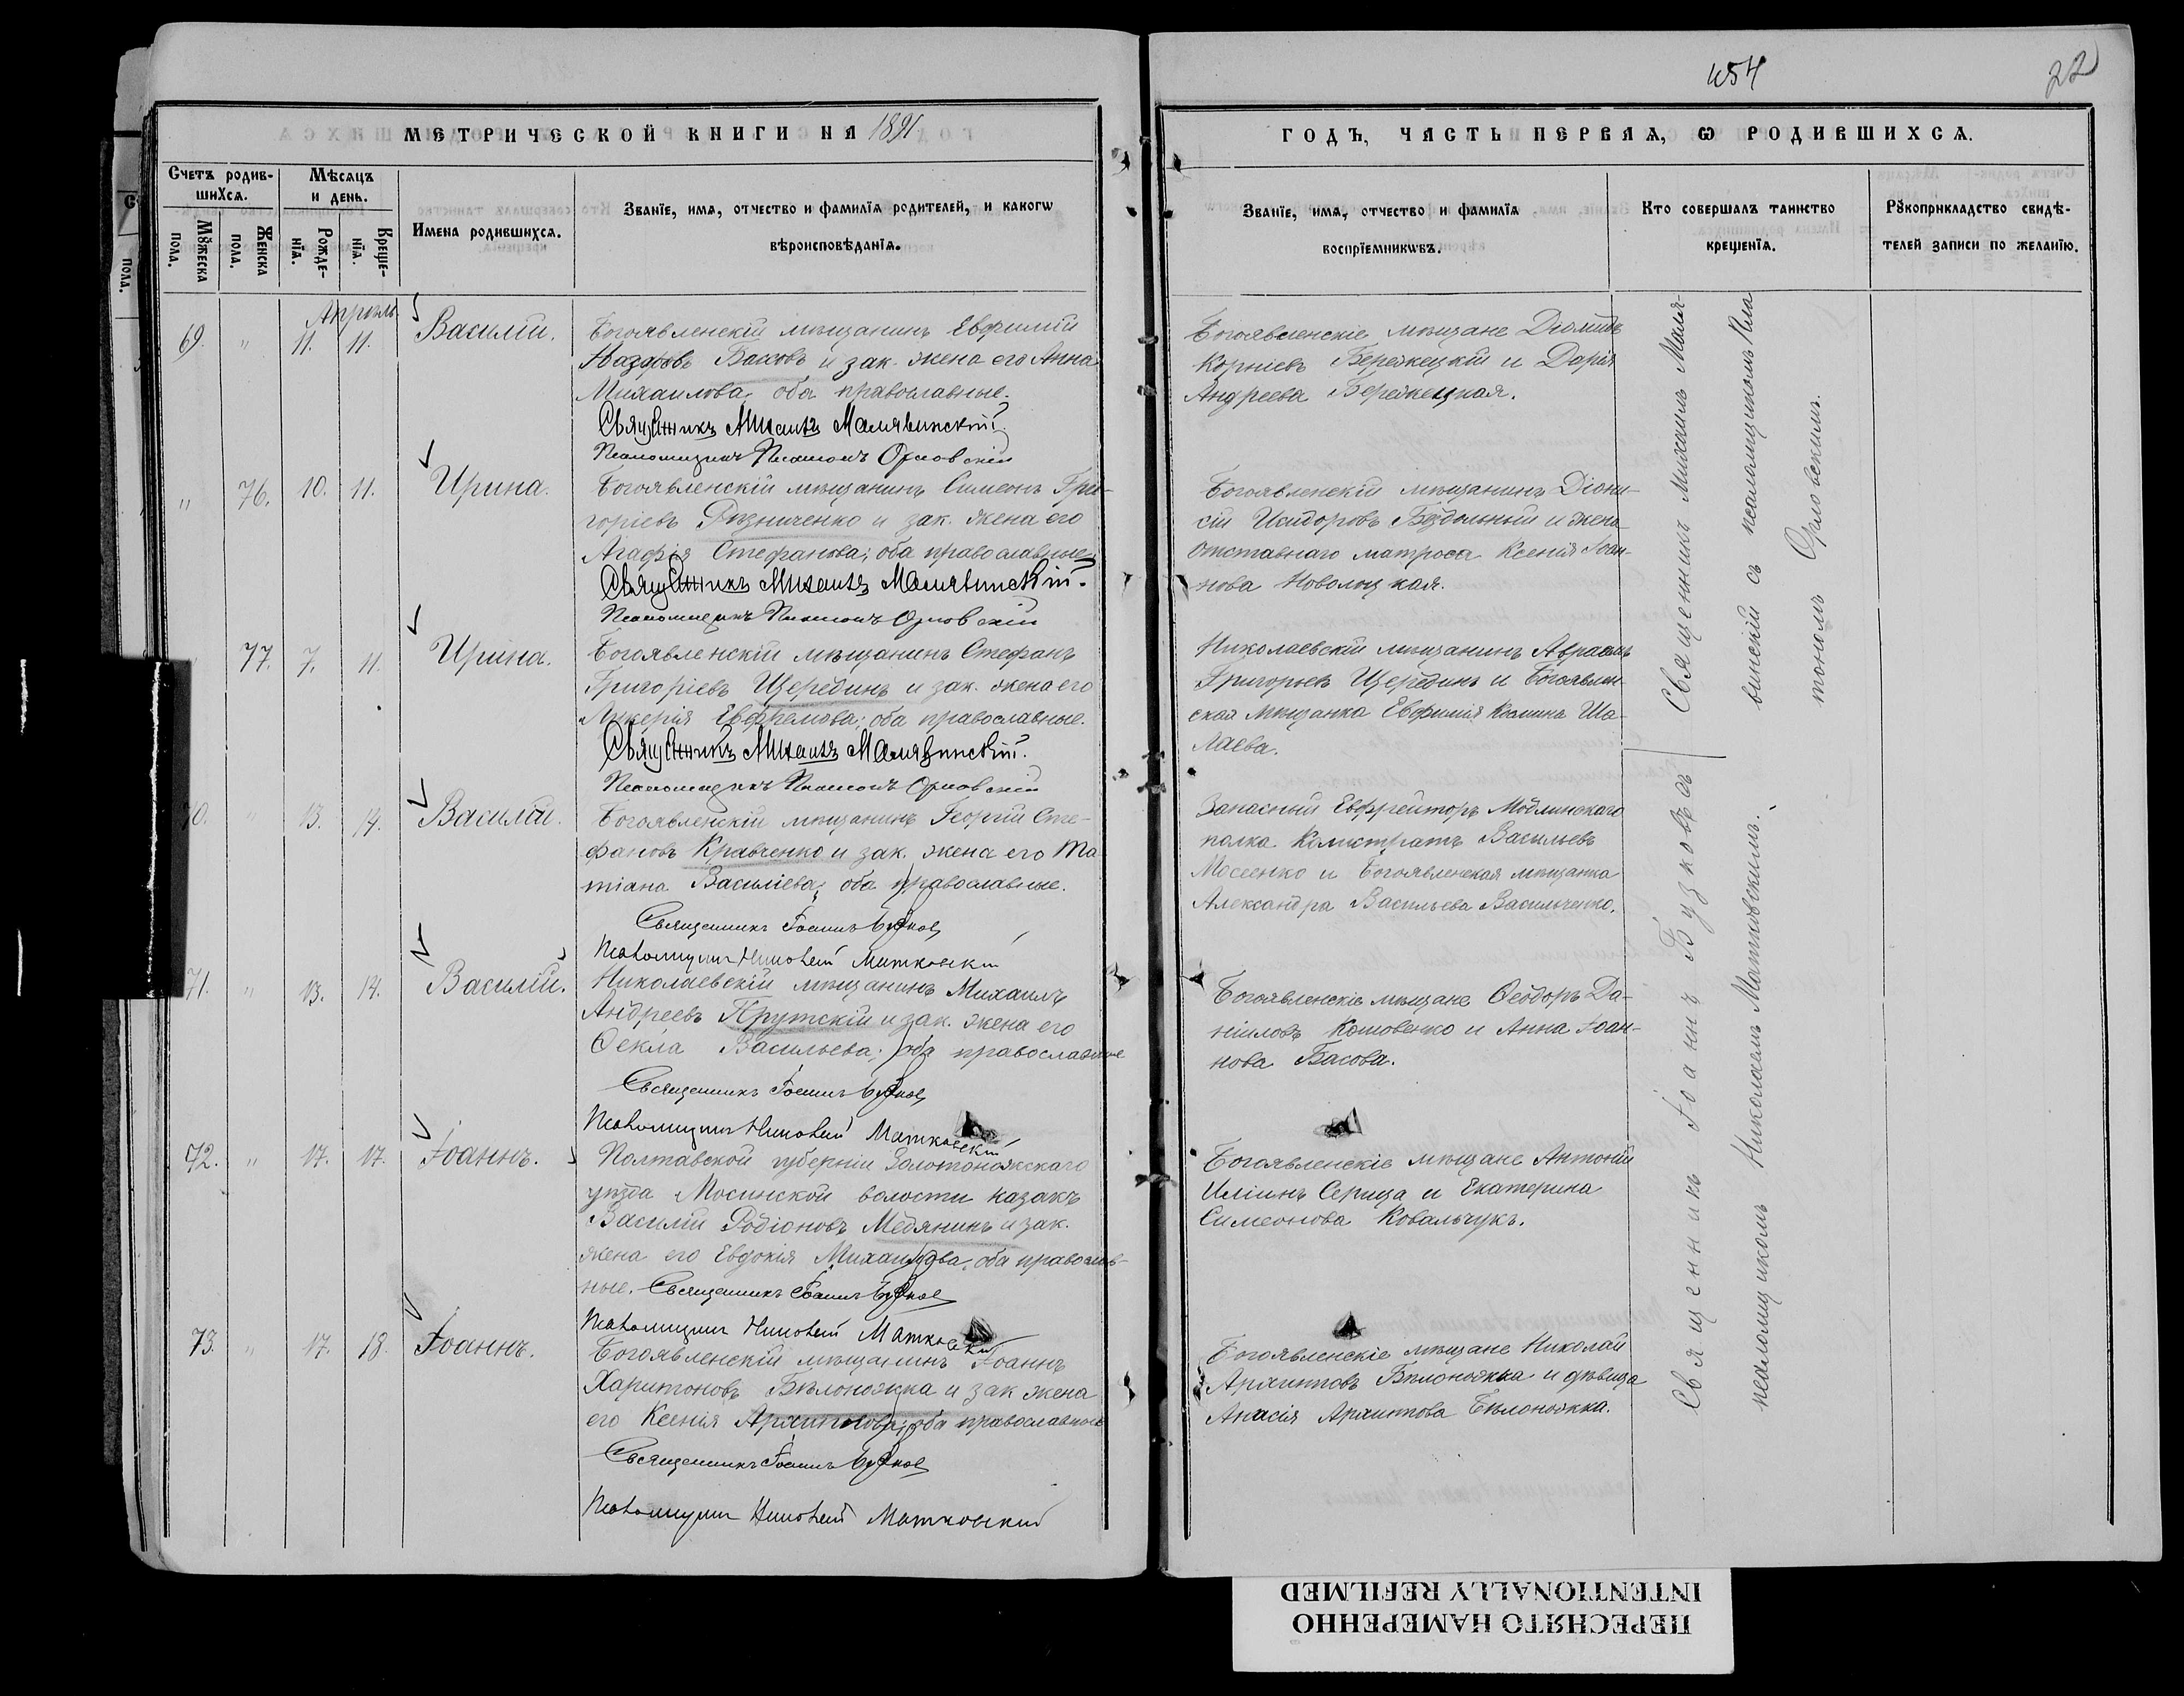 454
22
МЕТРИЧЕСКОЙ КНИГИ НА 1891
ГОДЪ, ЧАСТЬ ПЕРВАЯ, Ѡ РОДИВШИХСѦ.
Счетъ родив-
шихсѧ.
Мѣсѧцъ
и день.
Мꙋжеска
пола.
Женска
пола.
Рожде-
нїѧ.
Креще-
нїѧ.
Имена родившихсѧ.
Званїе, имѧ, отчество и фамилїѧ родителей, и какогѡ
вѣроисповѣданїѧ.
Званїе, имѧ, отчество и фамилїѧ
воспрїемникѡвъ.
Кто совершалъ таинство
крещенїѧ.
Рꙋкоприкладство свидѣ-
телей записи по желанїю.
Апрѣль
69. " 11. 11. Василій.
Богоявленскій мѣщанинъ Евфимій
Назаровъ Басовъ и зак. жена его Анна
Михаилова, оба православные.
Священникъ Михаилъ Малявинскій
Псаломщикъ Платонъ Орловскій
Богоявленскіе мѣщане Діомидъ
Корніевъ Бережецкій и Дарія
Андреева Бережецкая.
" 76. 10. 11. Ирина.
Богоявленскій мѣщанинъ Симеонъ Гри-
горіевъ Рѣзниченко и зак. жена его
Агафія Стефанова; оба православные
Священникъ Михаилъ Малявинскій.
Псаломщикъ Платонъ Орловскій
Богоявленскій мѣщанинъ Діони-
сій Исидоровъ Бездольный и жена
отставнаго матроса Ксенія Іоан-
нова Новолоцкая.
77. 7. 11. Ирина.
Богоявленскій мѣщанинъ Стефанъ
Григоріевъ Щерединъ и зак. жена его
Ликерія Евфремова; оба православные.
Священникъ Михаилъ Малявинскій.
Псаломщикъ Платонъ Орловскій
Николаевскій мѣщанинъ Авраамъ
Григорьевъ Щерединъ и Богоявлен-
ская мѣщанка Евфимія Космина Ша-
лаева.
70. " 13. 14. Василій.
Богоявленскій мѣщанинъ Георгій Сте-
фановъ Кравченко и зак. жена его Та-
тіана Василіева; оба православные.
Священникъ Іоаннъ Бузковъ
Псаломщикъ Николай Матковскій
Запасный Евфрейторъ Модлинскаго
полка Калистратъ Васильевъ
Мосеенко и Богоявленская мѣщанка
Александра Васильева Васильченко.
71. " 13. 14. Василій.
Николаевскій мѣщанинъ Михаилъ
Андреевъ Прутскій и зак. жена его
Ѳекла Васильева; оба православные
Священникъ Іоаннъ Бузковъ
Псаломщикъ Николай Матковскій
Богоявленскіе мѣщане Ѳеодоръ Да-
ніиловъ Кошовенко и Анна Іоан-
нова Басова.
72. " 17. 17. Іоаннъ.
Полтавской губерніи Золотоношскаго
уѣзда Мосинской волости казакъ
Василій Родіоновъ Медянинъ и зак.
жена его Евдокія Михаилова, оба православ-
ные. Священникъ Іоаннъ Бузковъ
Псаломщикъ Николай Матковскій
Богоявленскіе мѣщане Антоній
Иліинъ Серица и Екатерина
Симеонова Ковальчукъ.
73. " 17. 18. Іоаннъ.
Богоявленскій мѣщанинъ Іоаннъ
Харитоновъ Бѣлоножка и зак жена
его Ксенія Архиппова; оба православные
Священникъ Іоаннъ Бузковъ
Псаломщикъ Николай Матковскій
Богоявленскіе мѣщане Николай
Архипповъ Бѣлоножка и дѣвица
Анасія Архиппова Бѣлоножка.
Священникъ Михаилъ Маля-
винскій съ псаломщикомъ Пла
тономъ Орловскимъ.
Священникъ Іоаннъ Бузковъ съ
псаломщикомъ Николаемъ Матковскимъ.
ПЕРЕСНЯТО НАМЕРЕННО
INTENTIONALLY REFILMED